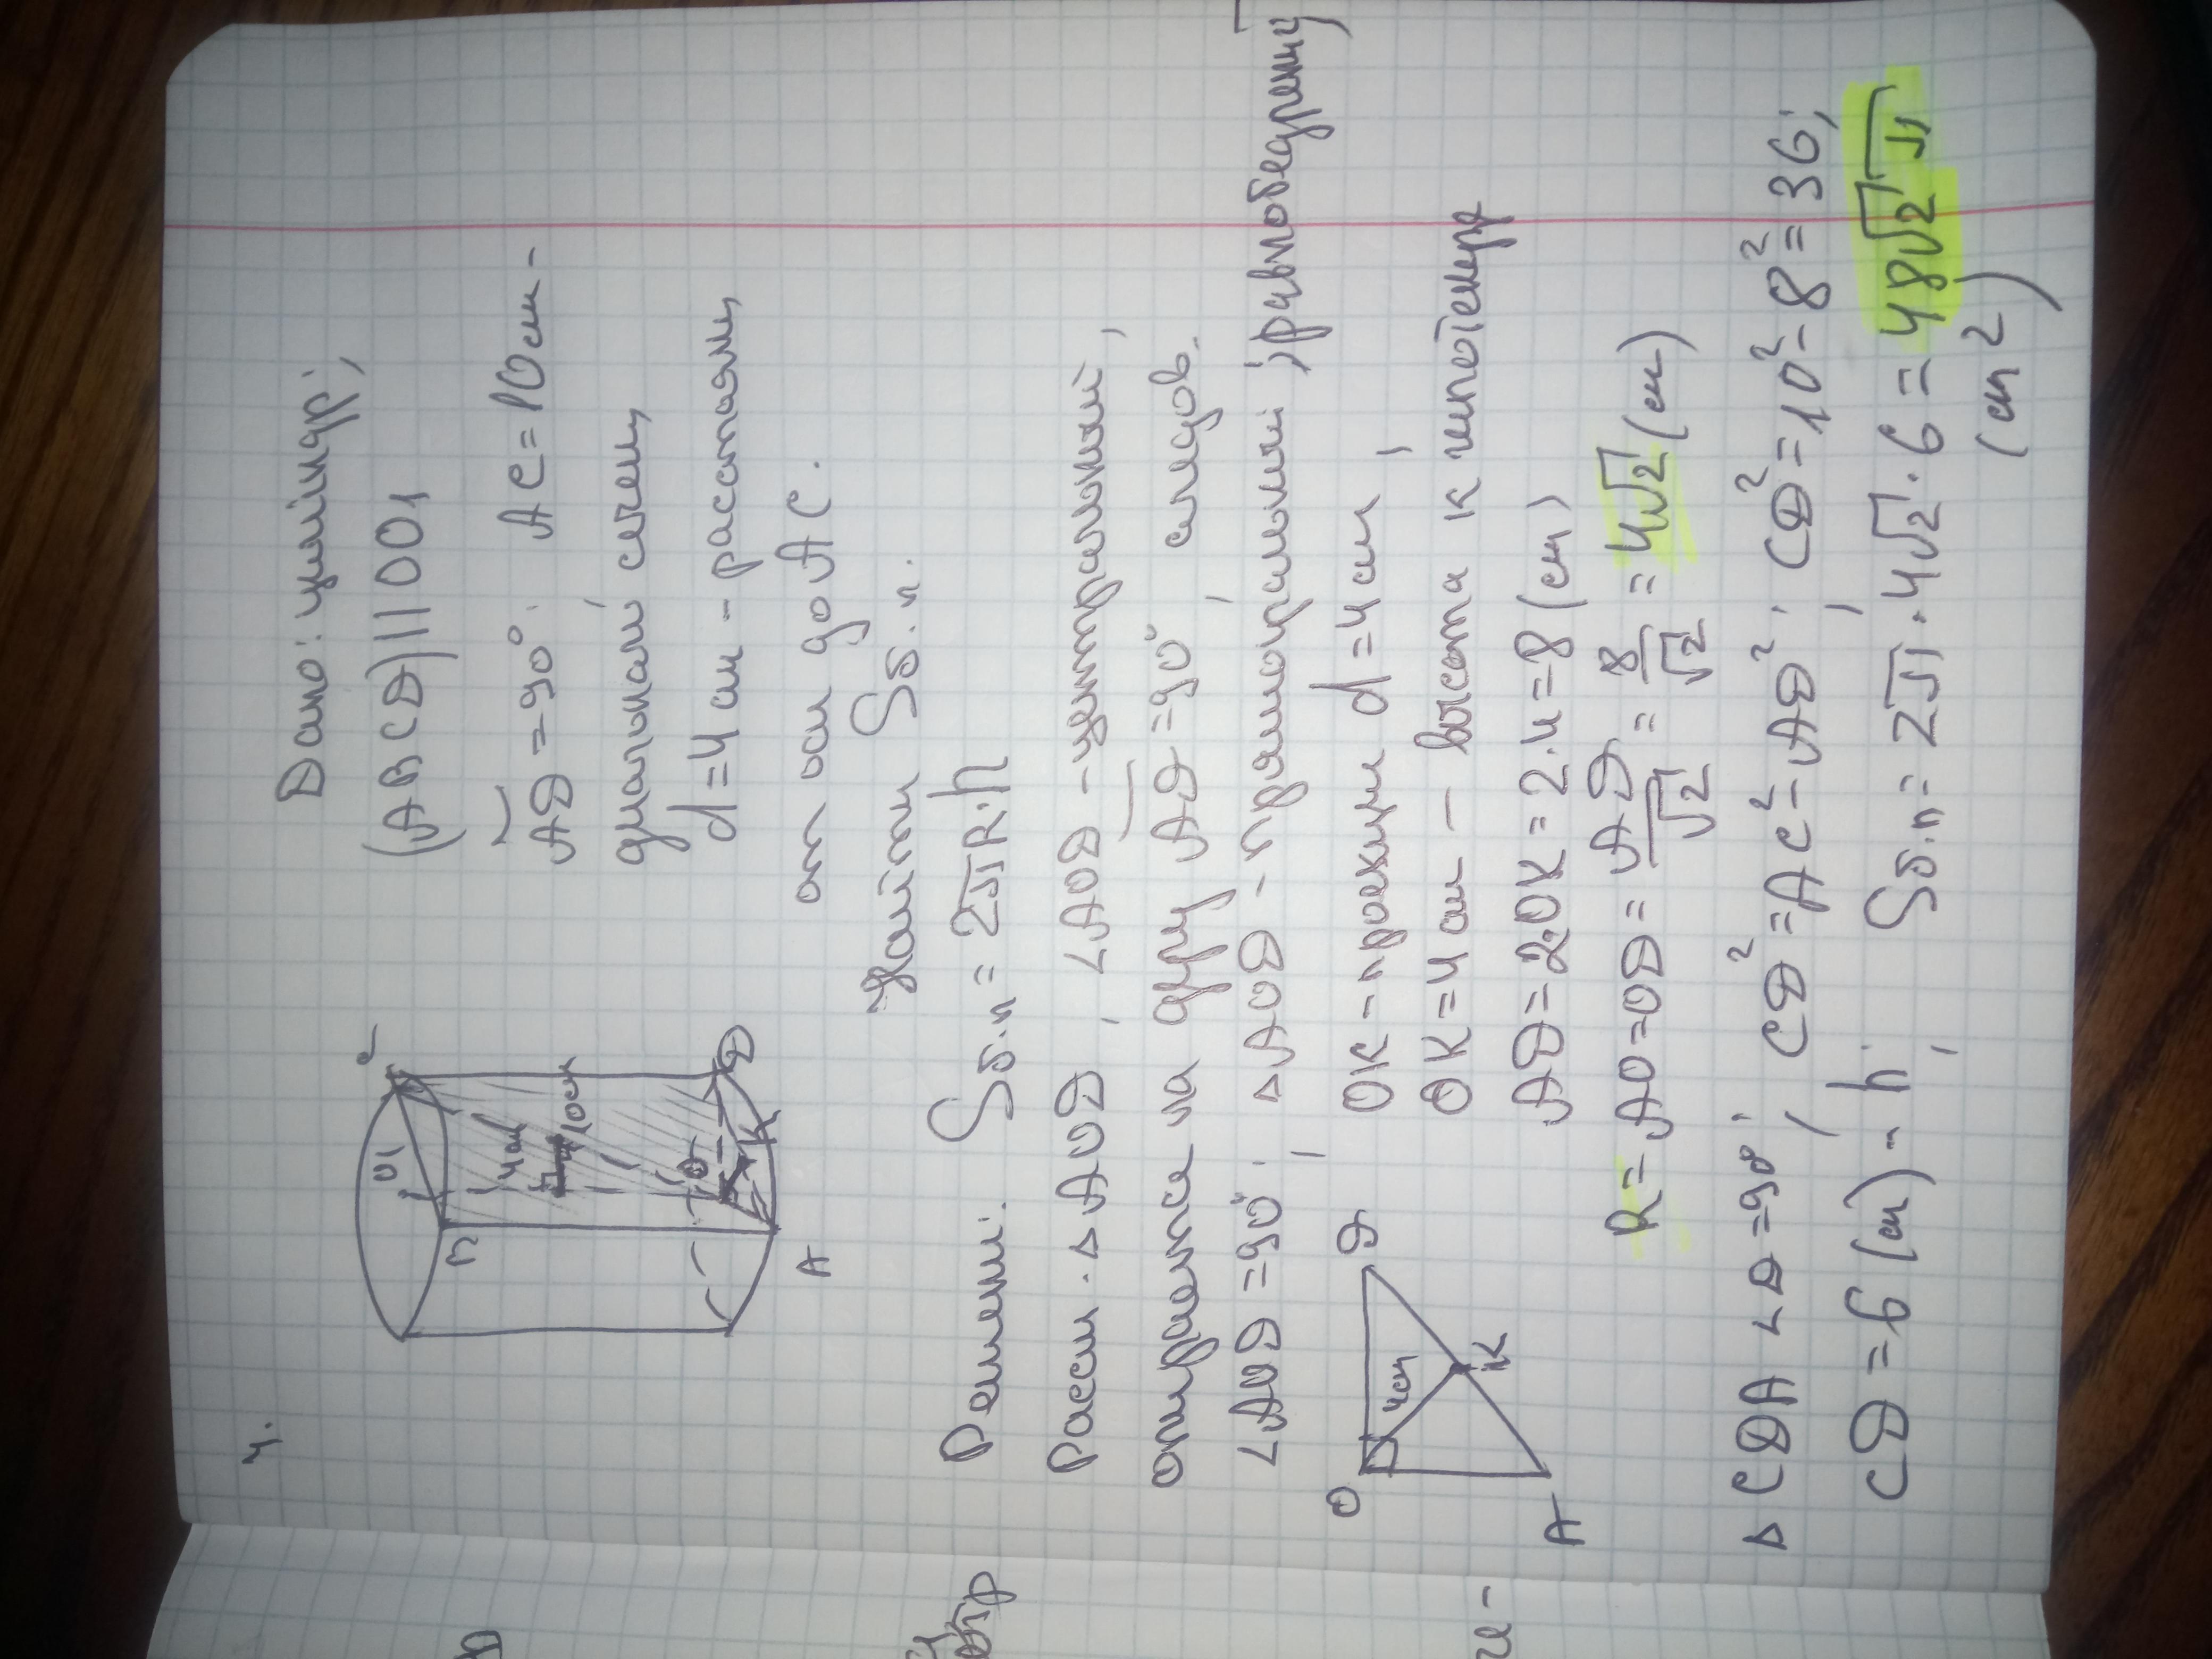 4.
Дано: цилиндр;
(ABCD) || OO1
AD = 90°; AC = 10 см -
диагонали сечен,
d = 4 см - расстояни,
от оси до AC.
Найти Sб.п.
C
O1
4см
10см
O
K
D
A
Решени. Sб.п = 2πR·h
Рассм. △AOD, ∠AOD - центральный,
опирается на дугу AD = 90°, следов.
∠AOD = 90°; △AOD - прямоугольный; равнобедренный
O
4см
K
D
A
OK - проекции d = 4 см,
OK = 4 см - высота к гипотенузе
AD = 2·OK = 2·4 = 8 (см)
R = AO = OD = AD/√2 = 8/√2 = 4√2 (см)
△CDA ∠D = 90°, CD² = AC² - AD²; CD² = 10² - 8² = 36;
CD = 6 (см) - h; Sб.п = 2π·4√2·6 = 48√2π
(см²)